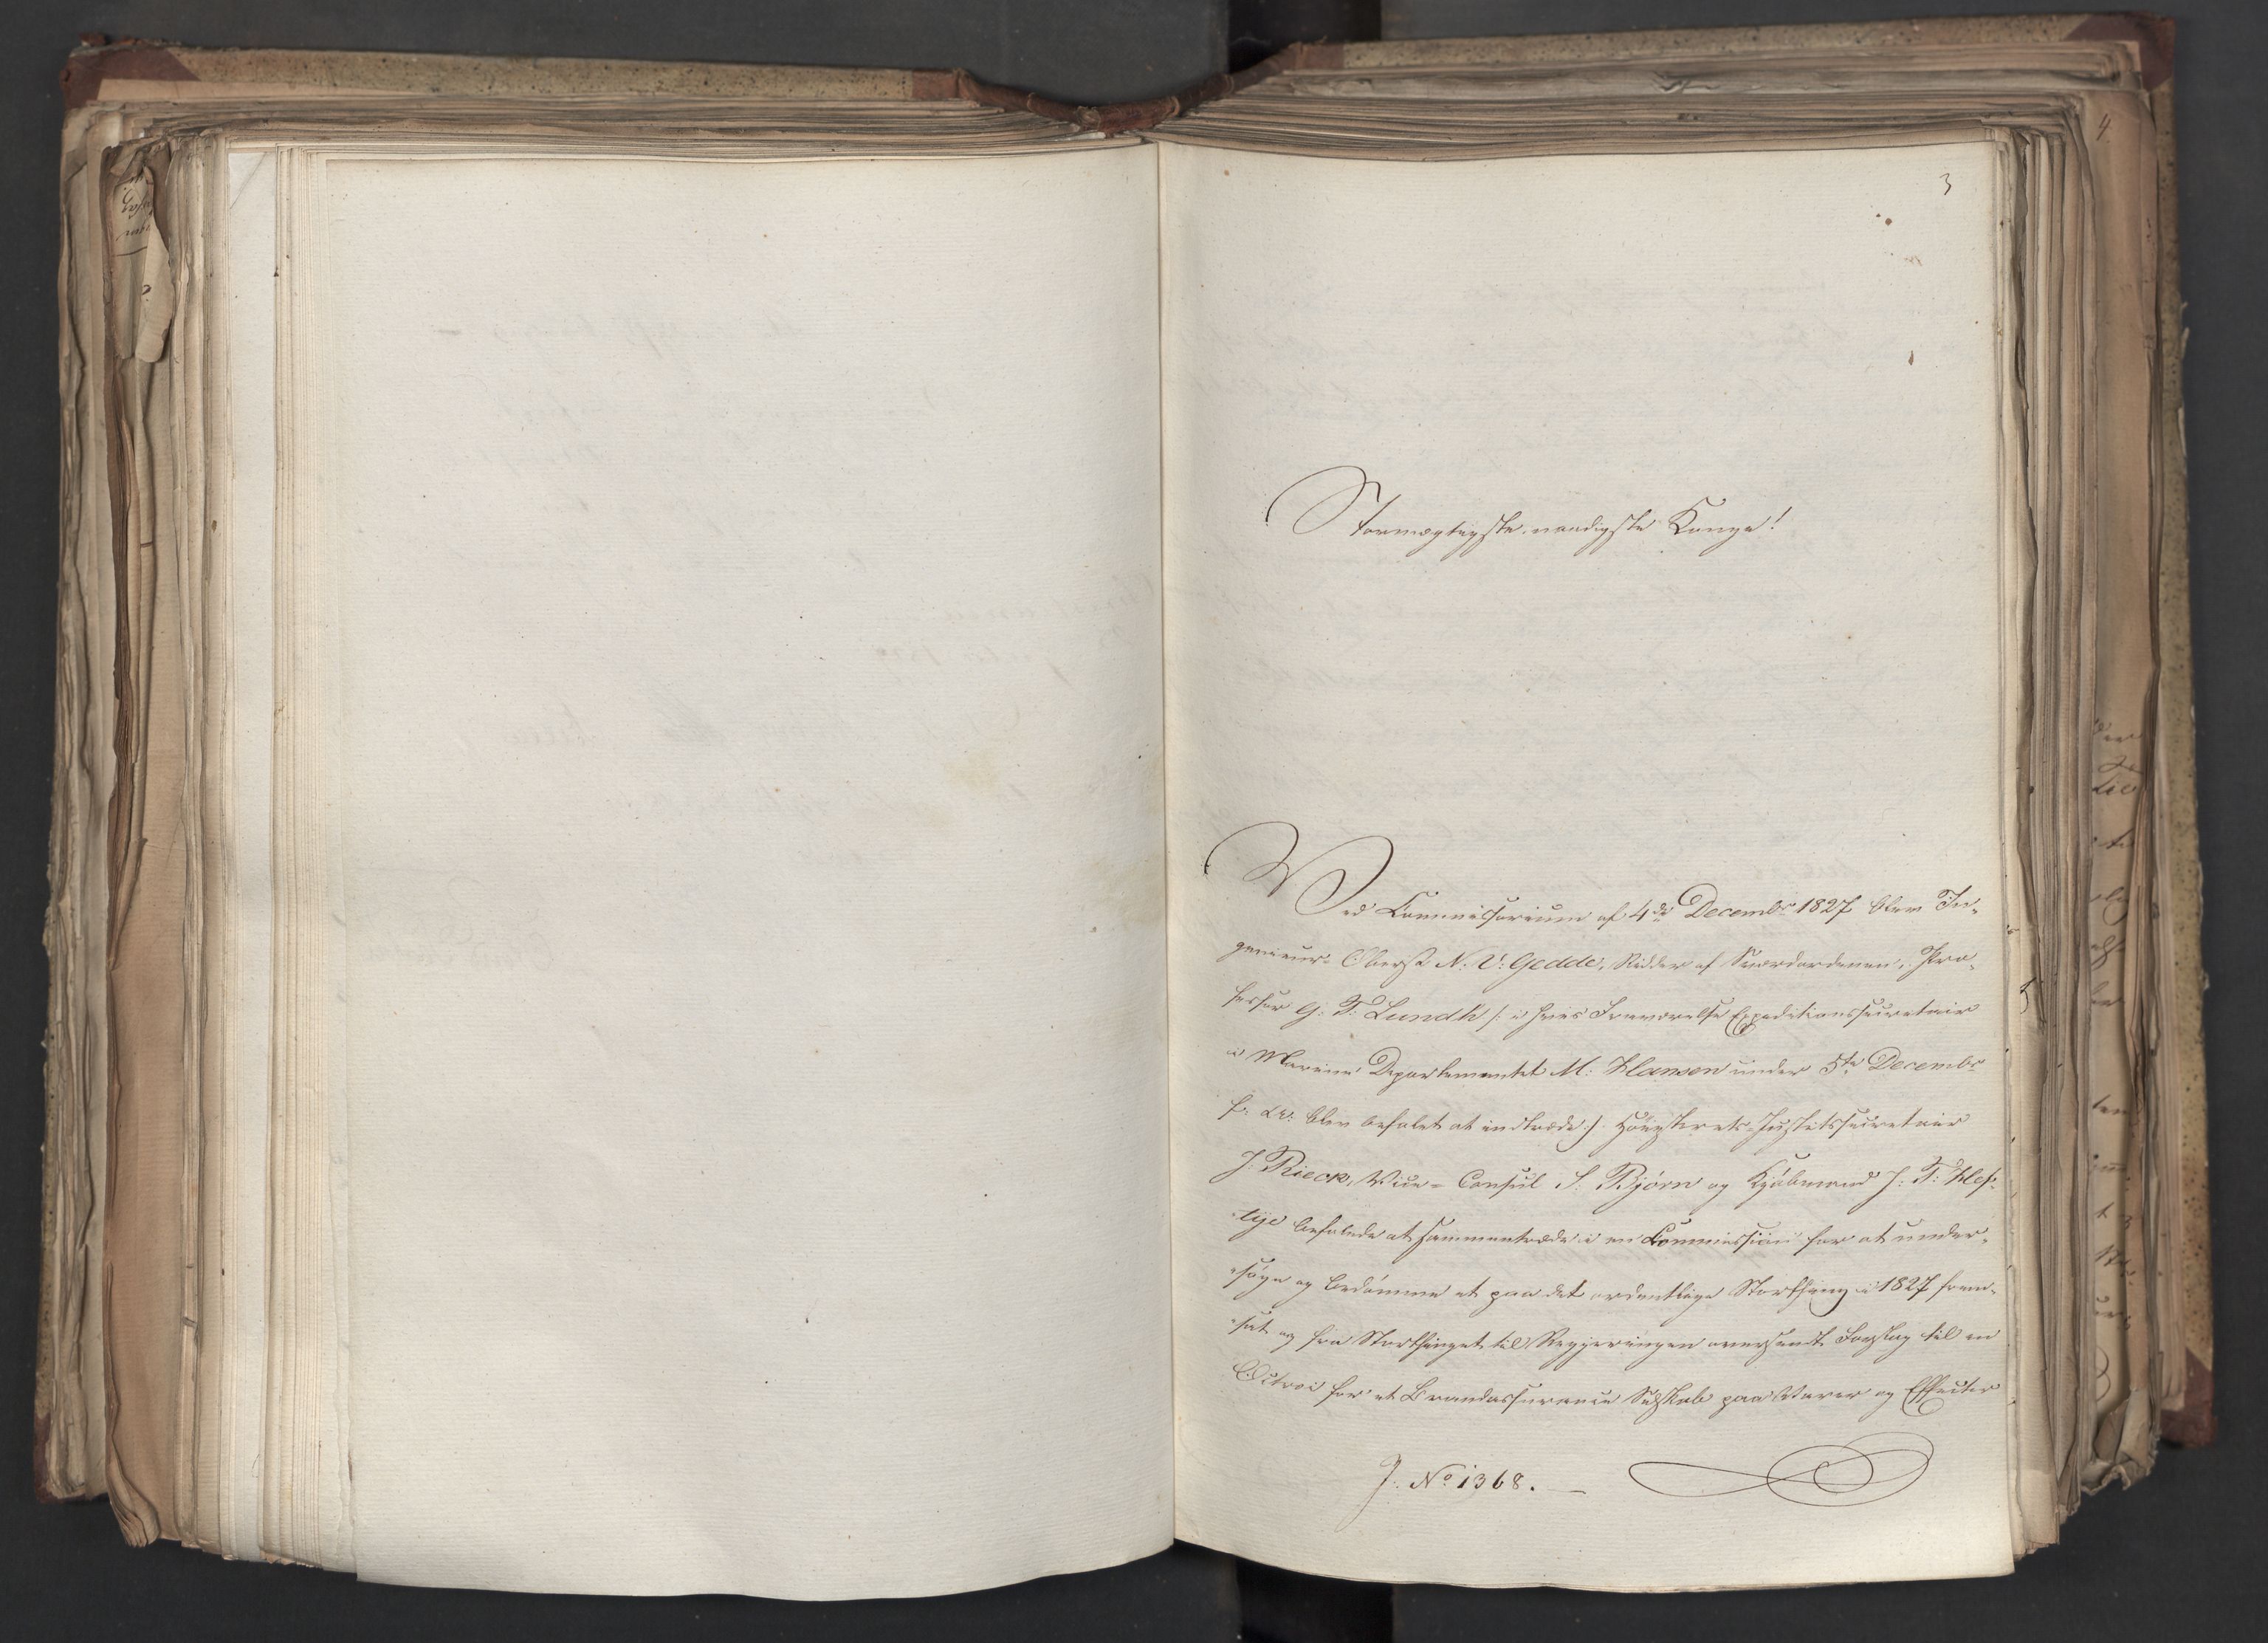 3
Stormægtigste naadigste Konge!
Ved Commissorium af 4de Decembr 1827 blev In-
genieur-Oberst N: V: Gedde, Ridder af Sværdordenen, Pro-
fessor G: F: Lundh /: i hvis Fraværelse Expeditionssecretair
i Marine Departementet M: Hansen under 5te Decembr
f: A: blev befalet at indtræde :/ Høiesterets-Justitssecretair
J: Rieck, Vice-Consul S: Bjørn og Kjøbmand J: T: Hef-
tye befalede at sammentræde i en Commission for at under-
søge og bedømme et paa det ordentlige Storthing i 1827 frem-
sat og fra Storthinget til Regjeringen oversendt Forslag til en
Octroi for et Brandassurance Selskab paa Varer og Effecter
J: No 1368.